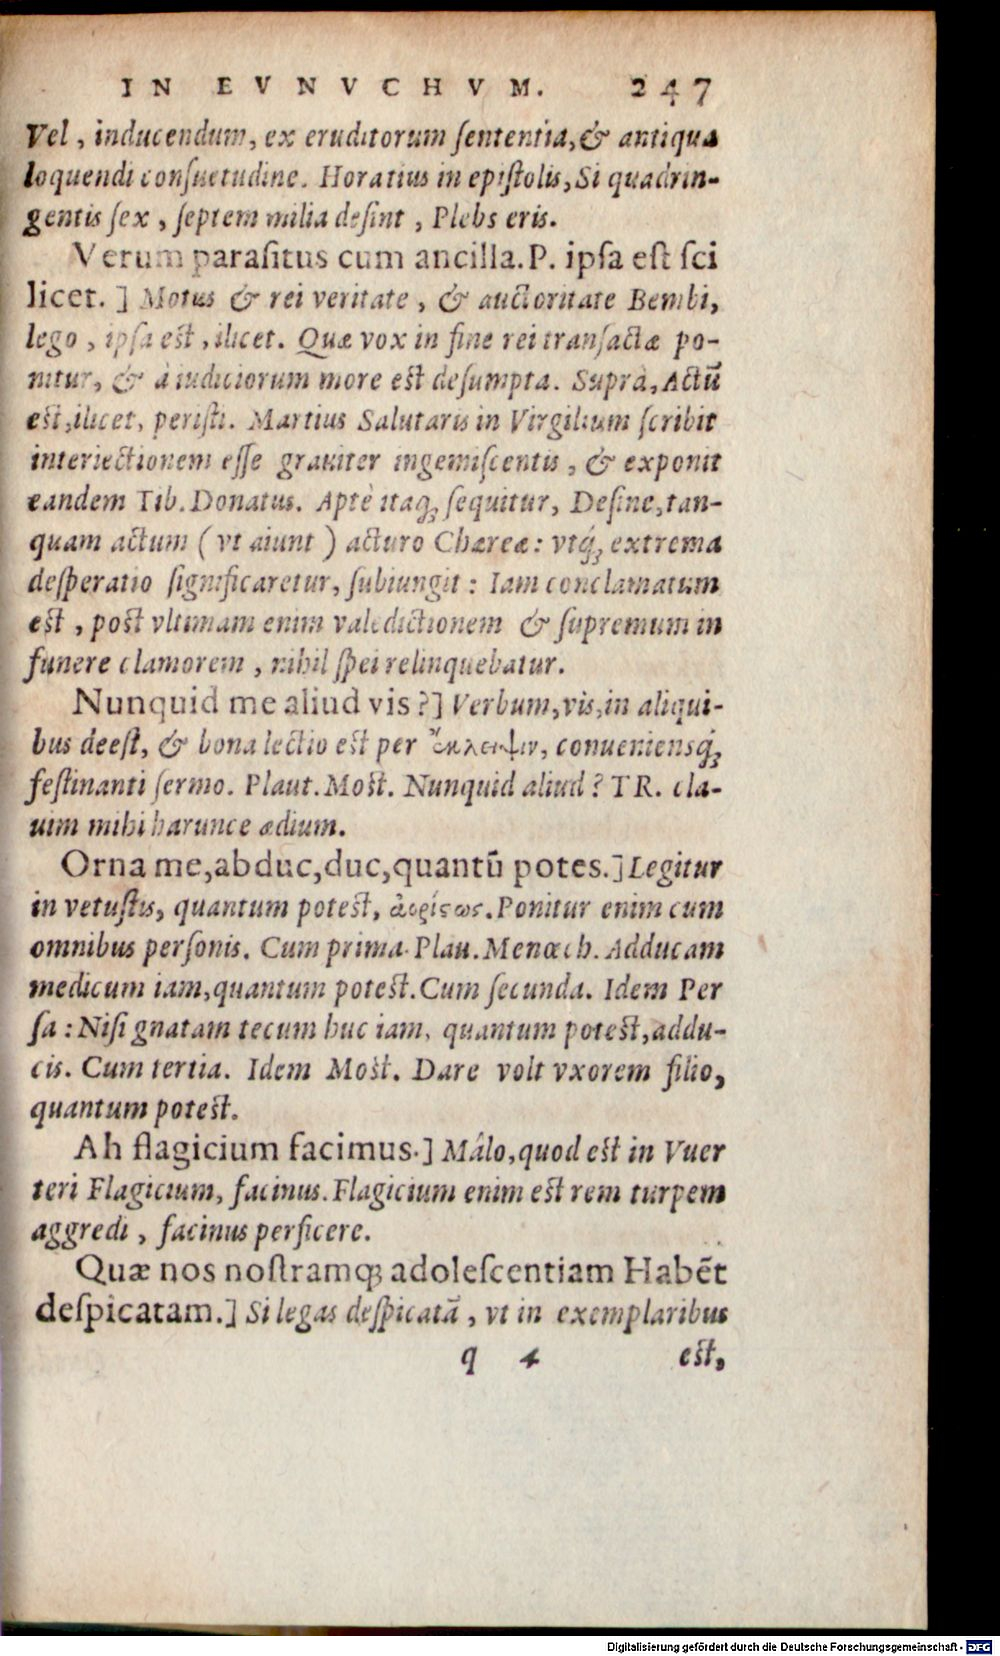 IN EVNVCHVM. 247
Vel, inducendum, ex eruditorum ſententia, & antiqua
loquendi conſuetudine. Horatius in epiſtolis, Si quadrin-
gentis ſex, ſeptem milia deſint, Plebs eris.
Verum paraſitus cum ancilla. P. ipſa eſt ſci
licet. ] Motus & rei veritate, & auctoritate Bembi,
lego, ipſa eſt, ilicet. Quæ vox in fine rei tranſactæ po-
nitur, & à iudiciorum more eſt deſumpta. Suprà, Actũ
eſt, ilicet, periſti. Martius Salutaris in Virgilium ſcribit
interiectionem eſſe grauiter ingemiſcentis, & exponit
eandem Tib. Donatus. Aptè itaq; ſequitur, Deſine, tan-
quam actum ( vt aiunt ) acturo Chæreæ: vtq́; extrema
deſperatio ſignificaretur, ſubiungit: Iam conclamatum
eſt, poſt vltimam enim valedictionem & ſupremum in
funere clamorem, nihil ſpei relinquebatur.
Nunquid me aliud vis?] Verbum, vis, in aliqui-
bus deeſt, & bona lectio eſt per ἔκλειψιν, conueniensq́;
feſtinanti ſermo. Plaut. Moſt. Nunquid aliud? TR. cla-
uim mihi harunce ædium.
Orna me, abduc, duc, quantũ potes.] Legitur
in vetuſtis, quantum poteſt, ἀορίςως. Ponitur enim cum
omnibus perſonis. Cum prima. Plau. Menœch. Adducam
medicum iam, quantum poteſt. Cum ſecunda. Idem Per
ſa: Niſi gnatam tecum huc iam, quantum poteſt, addu-
cis. Cum tertia. Idem Moſt. Dare volt vxorem filio,
quantum poteſt.
Ah flagicium facimus.] Mâlo, quod eſt in Vuer
teri Flagicium, facinus. Flagicium enim eſt rem turpem
aggredi, facinus perficere.
Quæ nos noſtramq; adoleſcentiam Habẽt
deſpicatam.] Si legas deſpicatã, vt in exemplaribus
q 4 eſt,
Digitalisierung gefördert durch die Deutsche Forschungsgemeinschaft - DFG